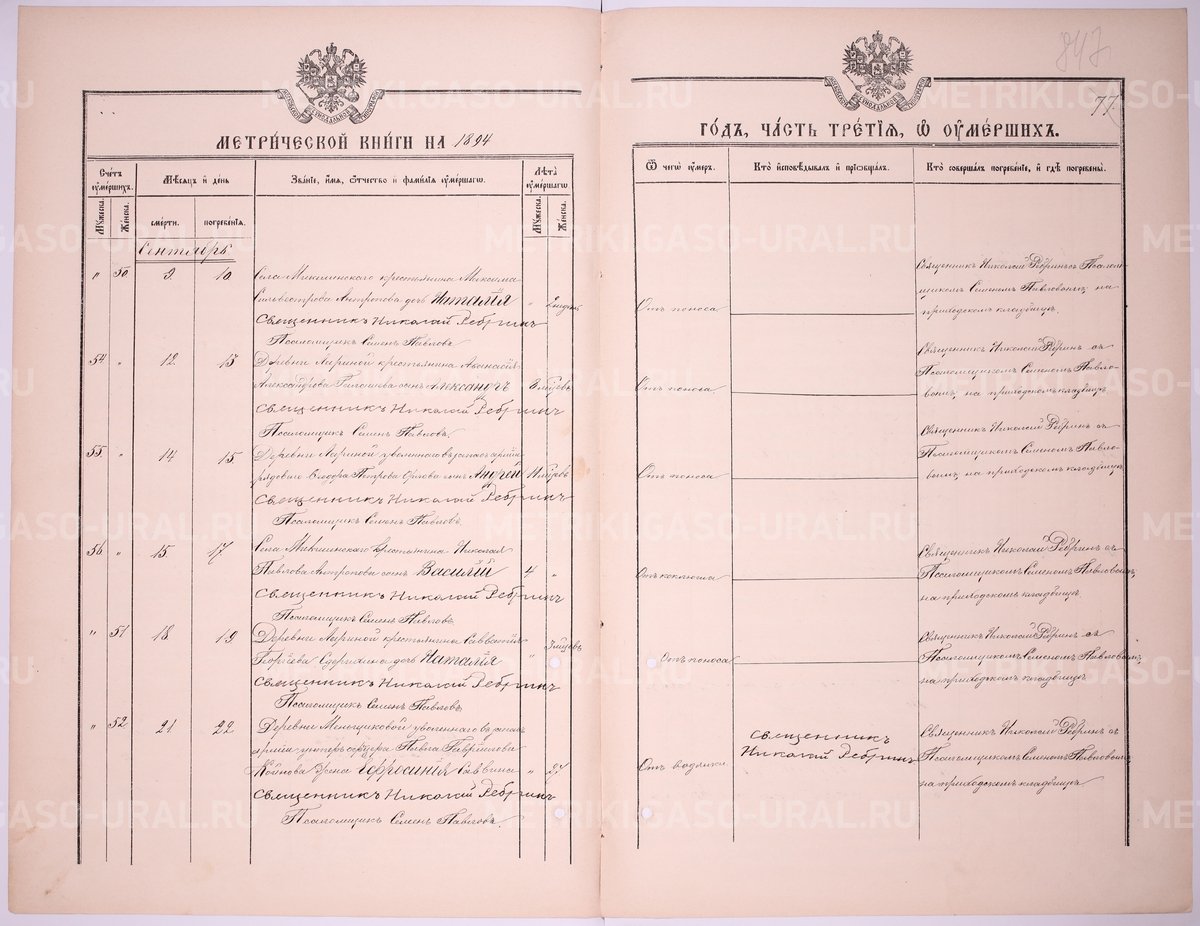 847
77
МЕТРИЧЕСКОЙ КНИГИ НА 1894
ГОДЪ, ЧАСТЬ ТРЕТІЯ, Ѿ ОУМЕРШИХЪ.
Счетъ оумершихъ.
Мѣсяцъ и день
Званіе, имя, отчество и фамилія оумершаго.
Лѣта оумершаго
Мужеска.
Женска.
смерти.
погребенія.
Мужеска.
Женска.
Ѿ чего оумеръ.
Кто исповѣдывалъ и пріобщалъ.
Кто совершалъ погребеніе, и гдѣ погребены.
Сентябрь
" 50 9 10 Села крестьянина Максима
Сильвестрова Антропова дочь Наталія "
Священникъ Николай Ребринъ
Псаломщикъ Семенъ Павловъ
Отъ поноса
Священникъ Николай Ребринъ съ Псалом-
щикомъ Семеномъ Павловымъ, на
приходскомъ кладбищѣ.
54 " 12 13 Деревни крестьянина Аѳанасія
Александрова сынъ Александръ
Священникъ Николай Ребринъ
Псаломщикъ Семенъ Павловъ.
Отъ поноса
Священникъ Николай Ребринъ съ
Псаломщикомъ Семеномъ Павло-
вымъ, на приходскомъ кладбищѣ
55 " 14 15 Деревни уволеннаго въ запасъ арміи
рядового Ѳеодора Петрова сынъ Андрей
Священникъ Николай Ребринъ
Псаломщикъ Семенъ Павловъ.
Отъ поноса
Священникъ Николай Ребринъ съ
Псаломщикомъ Семеномъ Павло-
вымъ, на приходскомъ кладбищѣ
56 " 15 17 Села крестьянина Николая
Павлова Антропова сынъ Василій 4 "
Священникъ Николай Ребринъ
Псаломщикъ Семенъ Павловъ
Отъ коклюша
Священникъ Николай Ребринъ съ
Псаломщикомъ Семеномъ Павловымъ,
на приходскомъ кладбищѣ
" 51 18 19 Деревни крестьянина Савватія
Георгіева дочь Наталія "
Священникъ Николай Ребринъ
Псаломщикъ Семенъ Павловъ
Отъ поноса
Священникъ Николай Ребринъ съ
Псаломщикомъ Семеномъ Павловымъ,
на приходскомъ кладбищѣ
" 52 21 22 Деревни Меньщиковой уволеннаго въ запасъ
арміи унтеръ-офицера Павла Гаврилова
жена Ефросинія Саввина " 27
Священникъ Николай Ребринъ
Псаломщикъ Семенъ Павловъ.
Отъ водянки
Священникъ
Николай Ребринъ
Священникъ Николай Ребринъ съ
Псаломщикомъ Семеномъ Павловымъ,
на приходскомъ кладбищѣ
METRIKI.GASO-URAL.RU